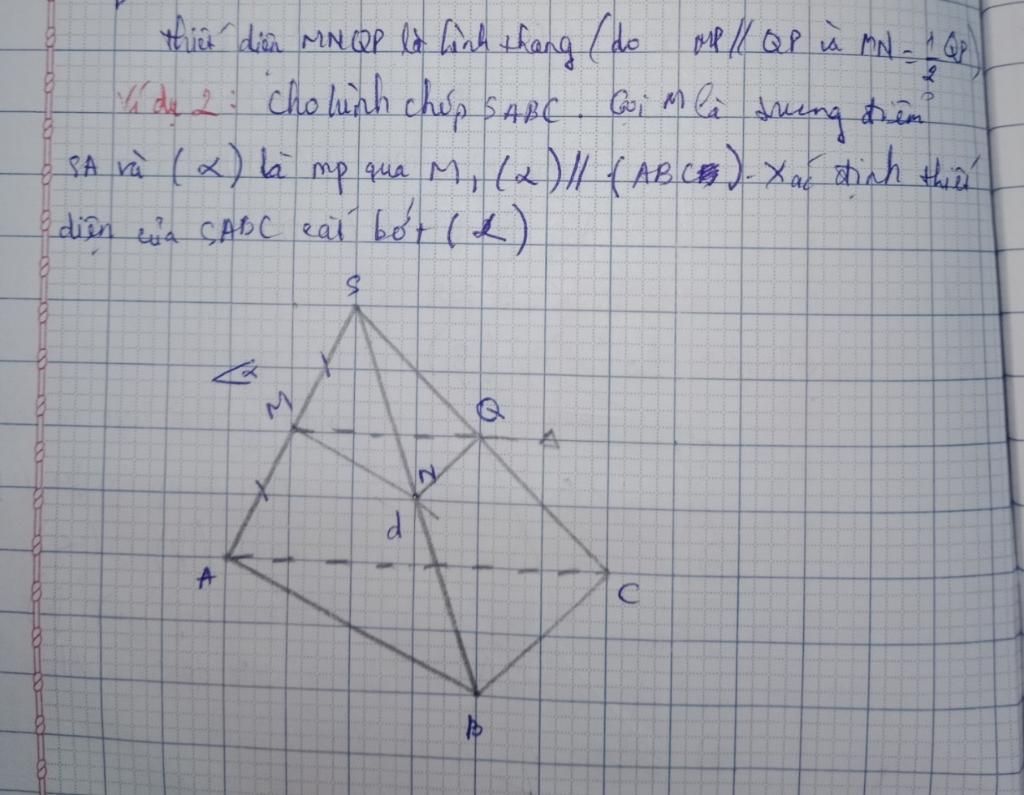 thiết diện MNQP là hình thang (do MP // QP và MN = 1/2 QP)
Ví dụ 2: Cho hình chóp SABC. Gọi M là trung điểm
SA và (α) là mp qua M, (α) // (ABC). Xác định thiết
diện của SABC cắt bởi (α)
S
α
M
Q
Δ
N
d
A
C
B